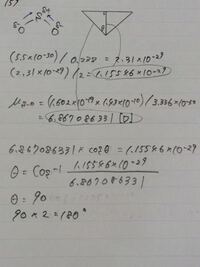 (5.5×10⁻³⁰) / 0.238 = 2.31×10⁻²⁹
(2.31×10⁻²⁹) /2 = 1.15546×10⁻²⁹
(1.602×10⁻¹⁹ × 1.43×10⁻¹⁰) / 3.336×10⁻³⁰
= 6.86708633 [D]
6.86708633 × cosθ = 1.15546×10⁻²⁹
θ = cos⁻¹ 1.15546×10⁻²⁹
6.86708633
θ = 90
90 × 2 = 180°